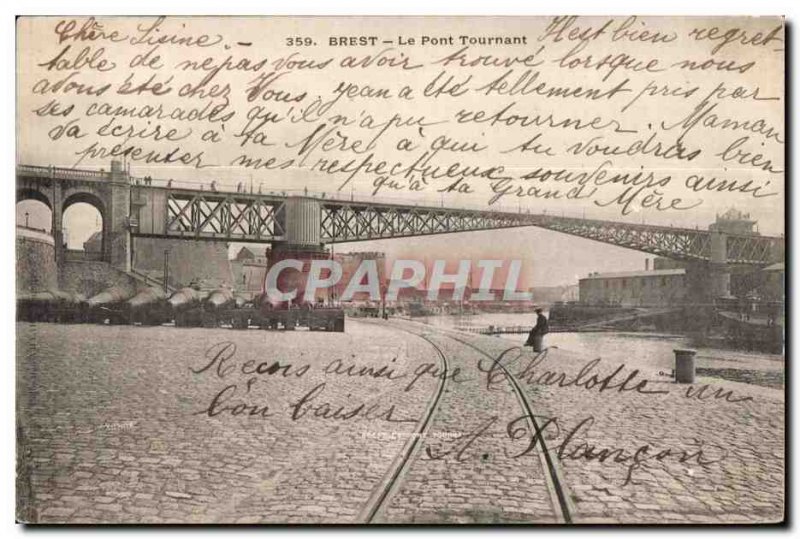 359. BREST – Le Pont Tournant
Chère Lisine – Il est bien regret-
table de ne pas vous avoir trouvé lorsque nous
avons été chez Vous, Jean a été tellement pris par
ses camarades qu'il n'a pu retourner. Maman
va écrire à ta Mère à qui tu voudras bien
présenter mes respectueux souvenirs ainsi
qu'à ta Grand Mère
CPARAMA
Recois ainsi que Charlotte un
bon baiser
A. Plançon